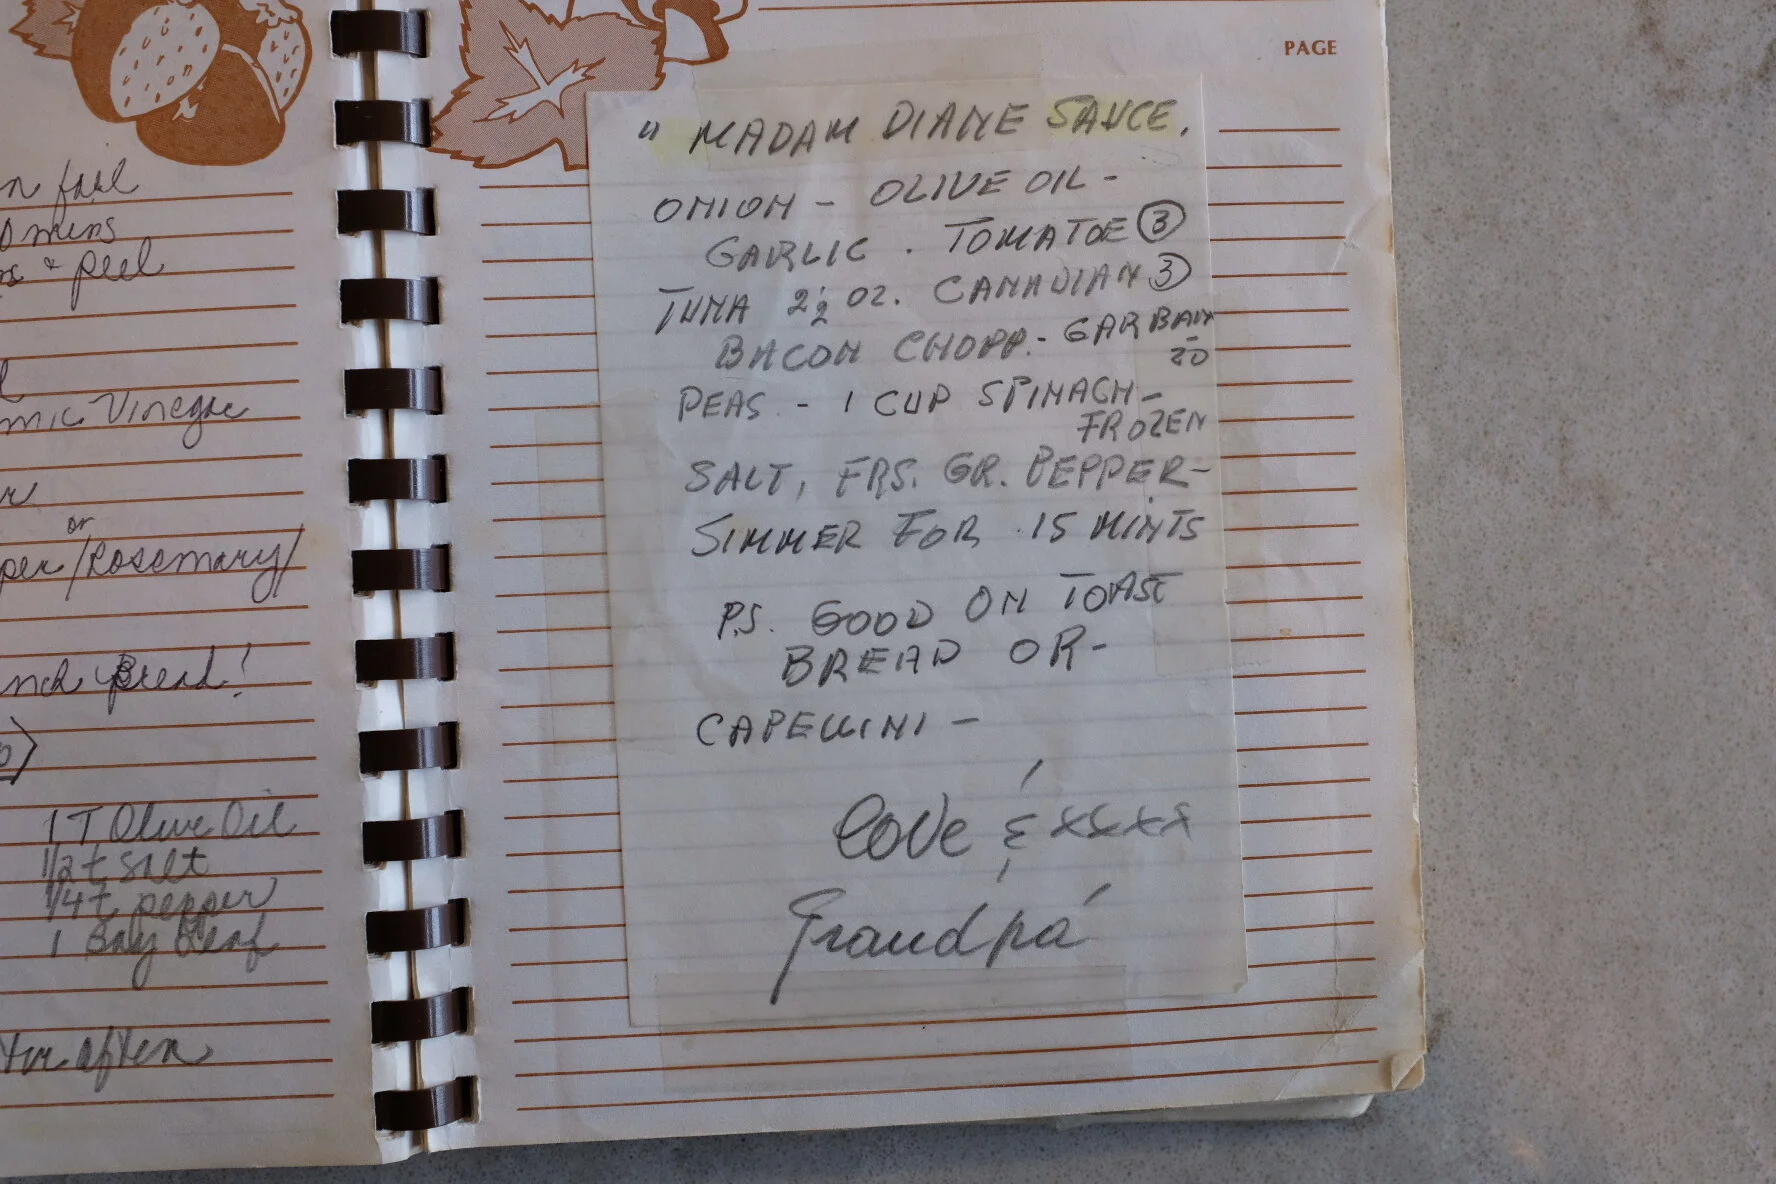 n fail
0 mins
rs & peel
mic Vinegar
or
per / Rosemary /
Bread!
1 T Olive Oil
1/2 t salt
1/4 t pepper
1 Bay Leaf
often
PAGE
" MADAM DIANE SAUCE.
ONION - OLIVE OIL -
GARLIC . TOMATOE ③
TUNA 2½ OZ. CANADIAN ③
BACON CHOPP. - GARBAN
20
PEAS. - 1 CUP SPINACH -
FROZEN
SALT, FRS. GR. PEPPER -
SIMMER FOR 15 MINTS
P.S. GOOD ON TOAST
BREAD OR -
CAPELLINI -
love & xxxx
Grandpa